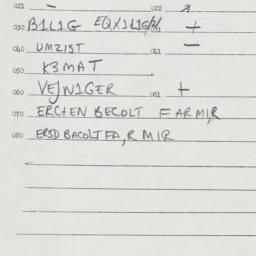 021 - 022
030 B1L1G EQX1L1G 031 +
040 UMZIST 041 -
050 K3MAT
060 VEJN1GER 061 +
070 ERCHEN BECOLT FARMIR
080 ERSD BACOLT FA, R MIR